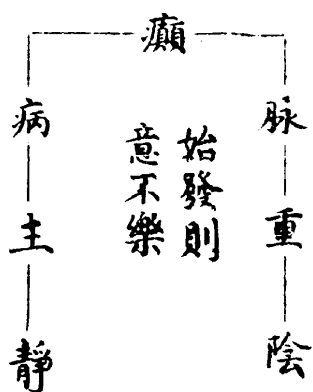 癲
脉重陰
始發則
意不樂
病主靜